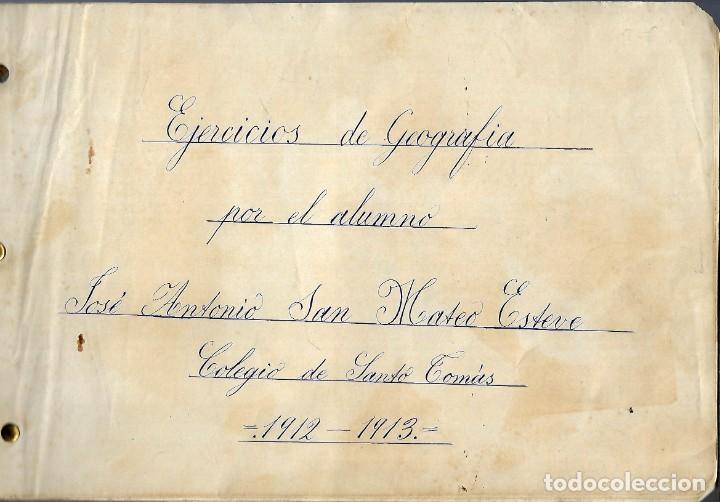 Ejercicios de Geografia
por el alumno
José Antonio San Mateo Esteve
Colegio de Santo Tomás
=.1912-1913.=
todocoleccion
todocoleccion.net